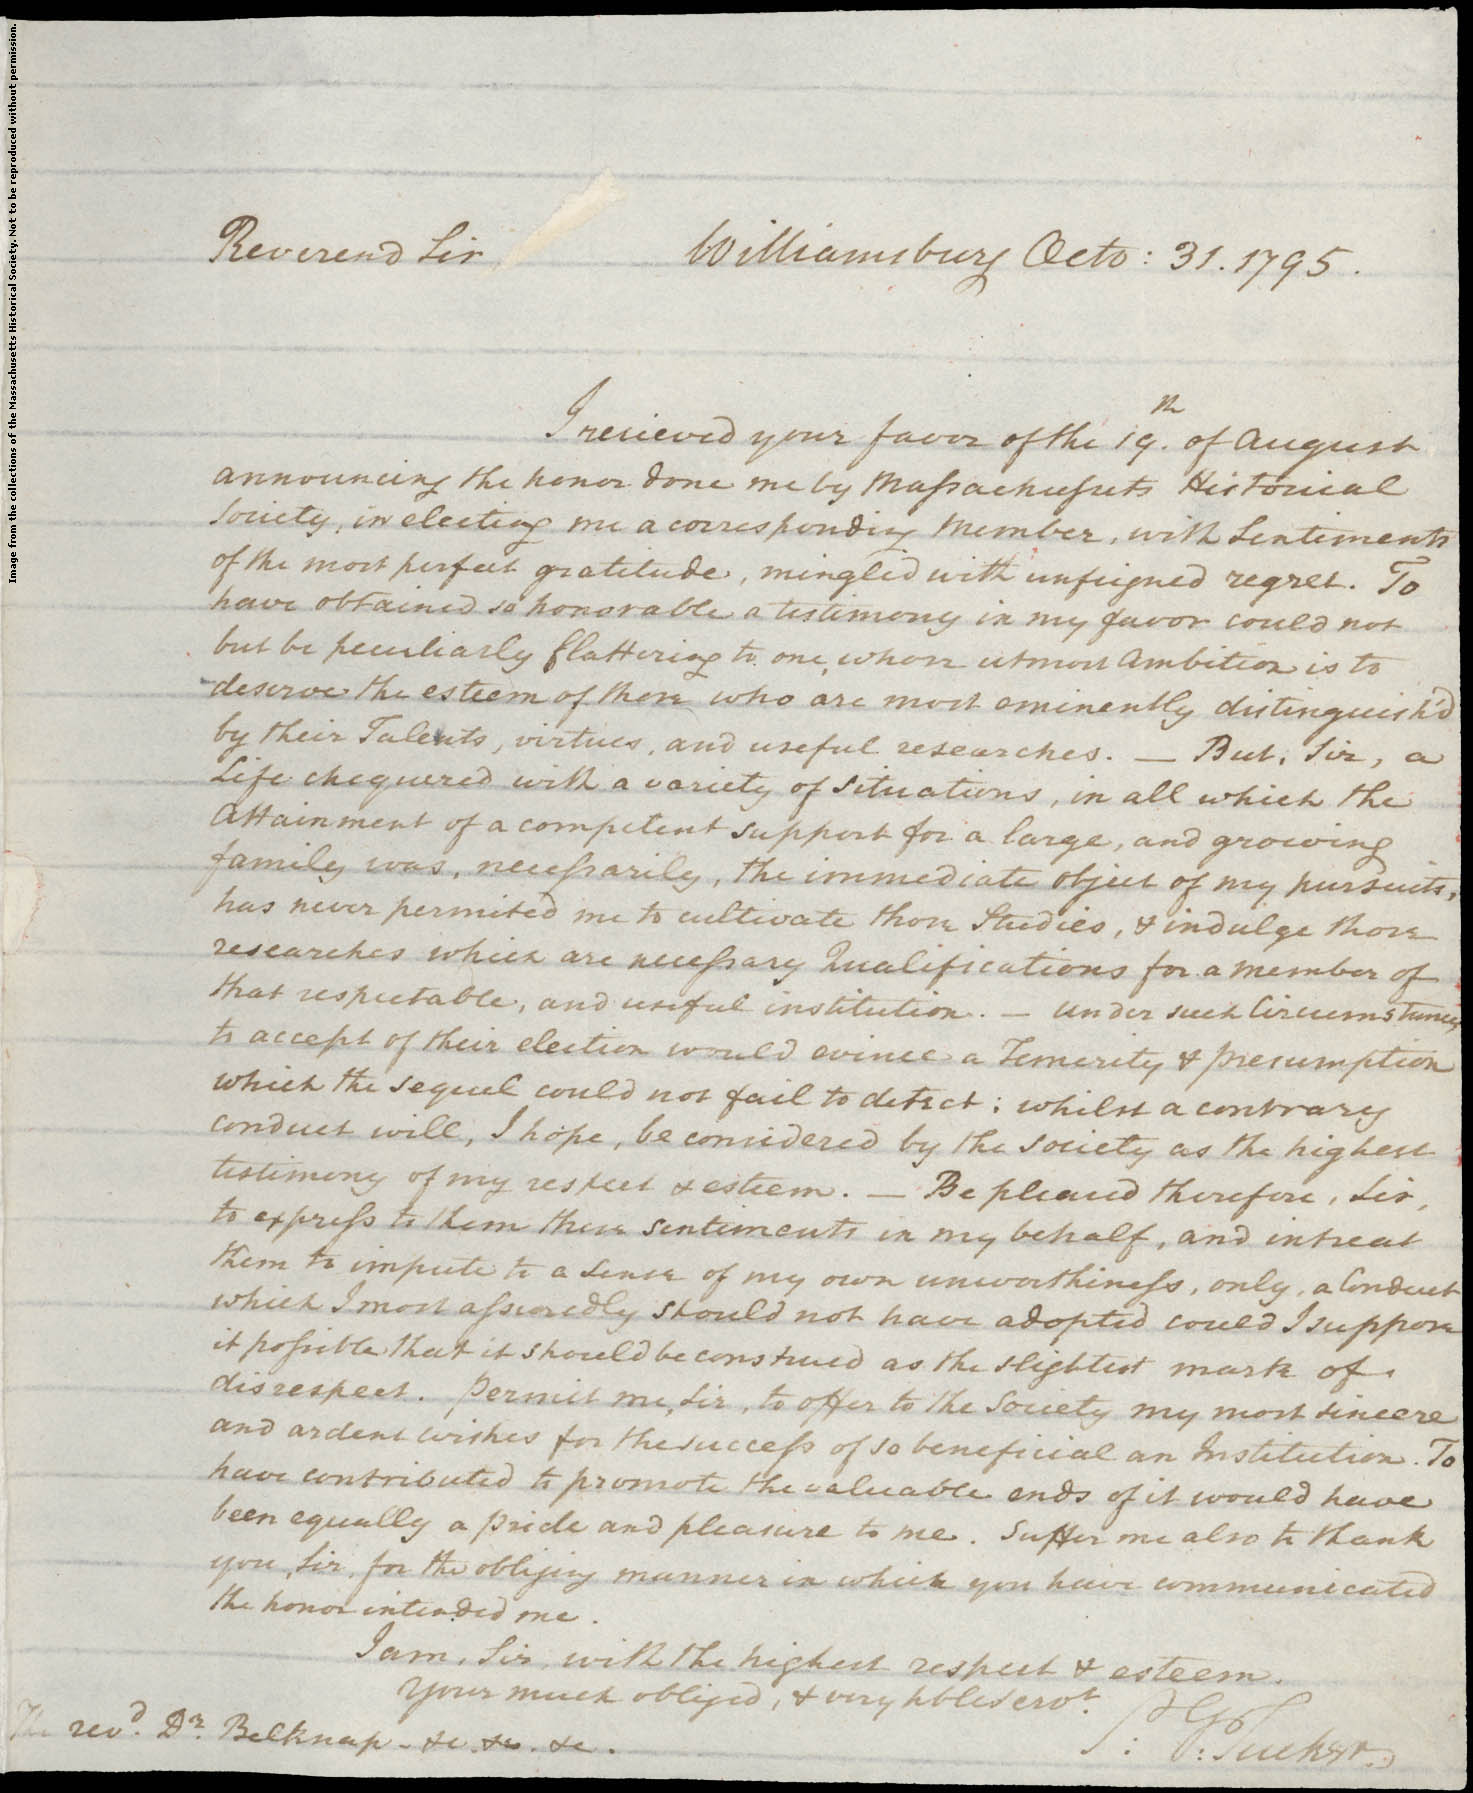 Image from the collections of the Massachusetts Historical Society. Not to be reproduced without permission.
Reverend Sir Williamsburg Octo: 31. 1795.
I recieved your favor of the 19th. of August
announcing the honor done me by Massachusets Historical
Society, in electing me a corresponding Member, with Sentiments
of the most perfect gratitude, mingled with unfeigned regret. To
have obtained so honorable a testimony in my favor could not
but be peculiarly flattering to one, whose utmost Ambition is to
deserve the esteem of those who are most eminently distinguish'd
by their Talents, virtues, and useful researches. — But, Sir, a
Life chequered with a variety of Situations, in all which the
Attainment of a competent support for a large, and growing
family was, necessarily, the immediate object of my pursuits,
has never permited me to cultivate those Studies, & indulge those
researches which are necessary Qualifications for a member of
that respectable, and useful institution. — Under such Circumstances
to accept of their election would evince a Temerity & presumption
which the sequel could not fail to detect; whilst a contrary
conduct will, I hope, be considered by the Society as the highest
testimony of my respect & esteem. — Be pleased therefore, Sir,
to express to them these sentiments in my behalf, and intreat
them to impute to a sense of my own unworthiness, only, a Conduct
which I most assuredly should not have adopted could I suppose
it possible that it should be construed as the slightest mark of
disrespect. Permit me, Sir, to offer to the Society my most sincere
and ardent wishes for the success of so beneficial an Institution. To
have contributed to promote the valuable ends of it would have
been equally a pride and pleasure to me. Suffer me also to thank
you, Sir, for the obliging manner in which you have communicated
the honor intended me.
I am, Sir, with the highest respect & esteem.
Your much obliged, & very hble servt.
S: G: Tucker
The revd. Dr. Belknap - &c. &c. &c.